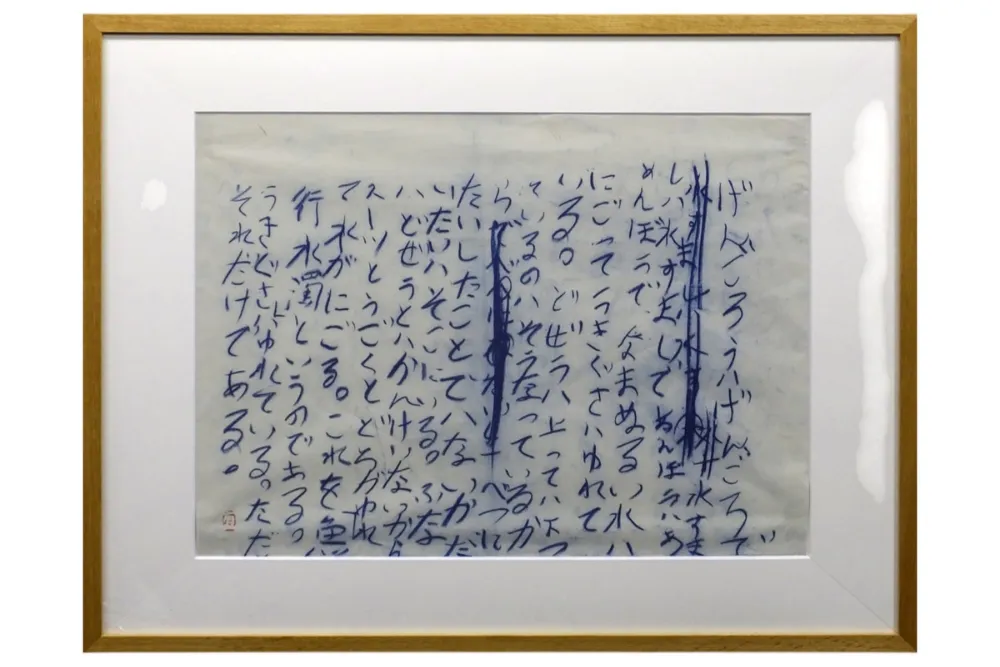 げんごろうハげんごろうで
水すま
しハ水すましであめんぼうハあ
めんぼうで なまぬるい水ハ
にごってうきぐさハゆれて
いる。どぜうハ上って
ているのハそうなっているか
らで べつに
たいしたことでハないがだ
いたいハそこにいる。ふな
ハどぜうとハかんけいないから
スーッとうごくとどろがゆれ
て水がにごる。これを魚
行水濁というのである。
うきぐさハゆれている。ただ
それだけである。